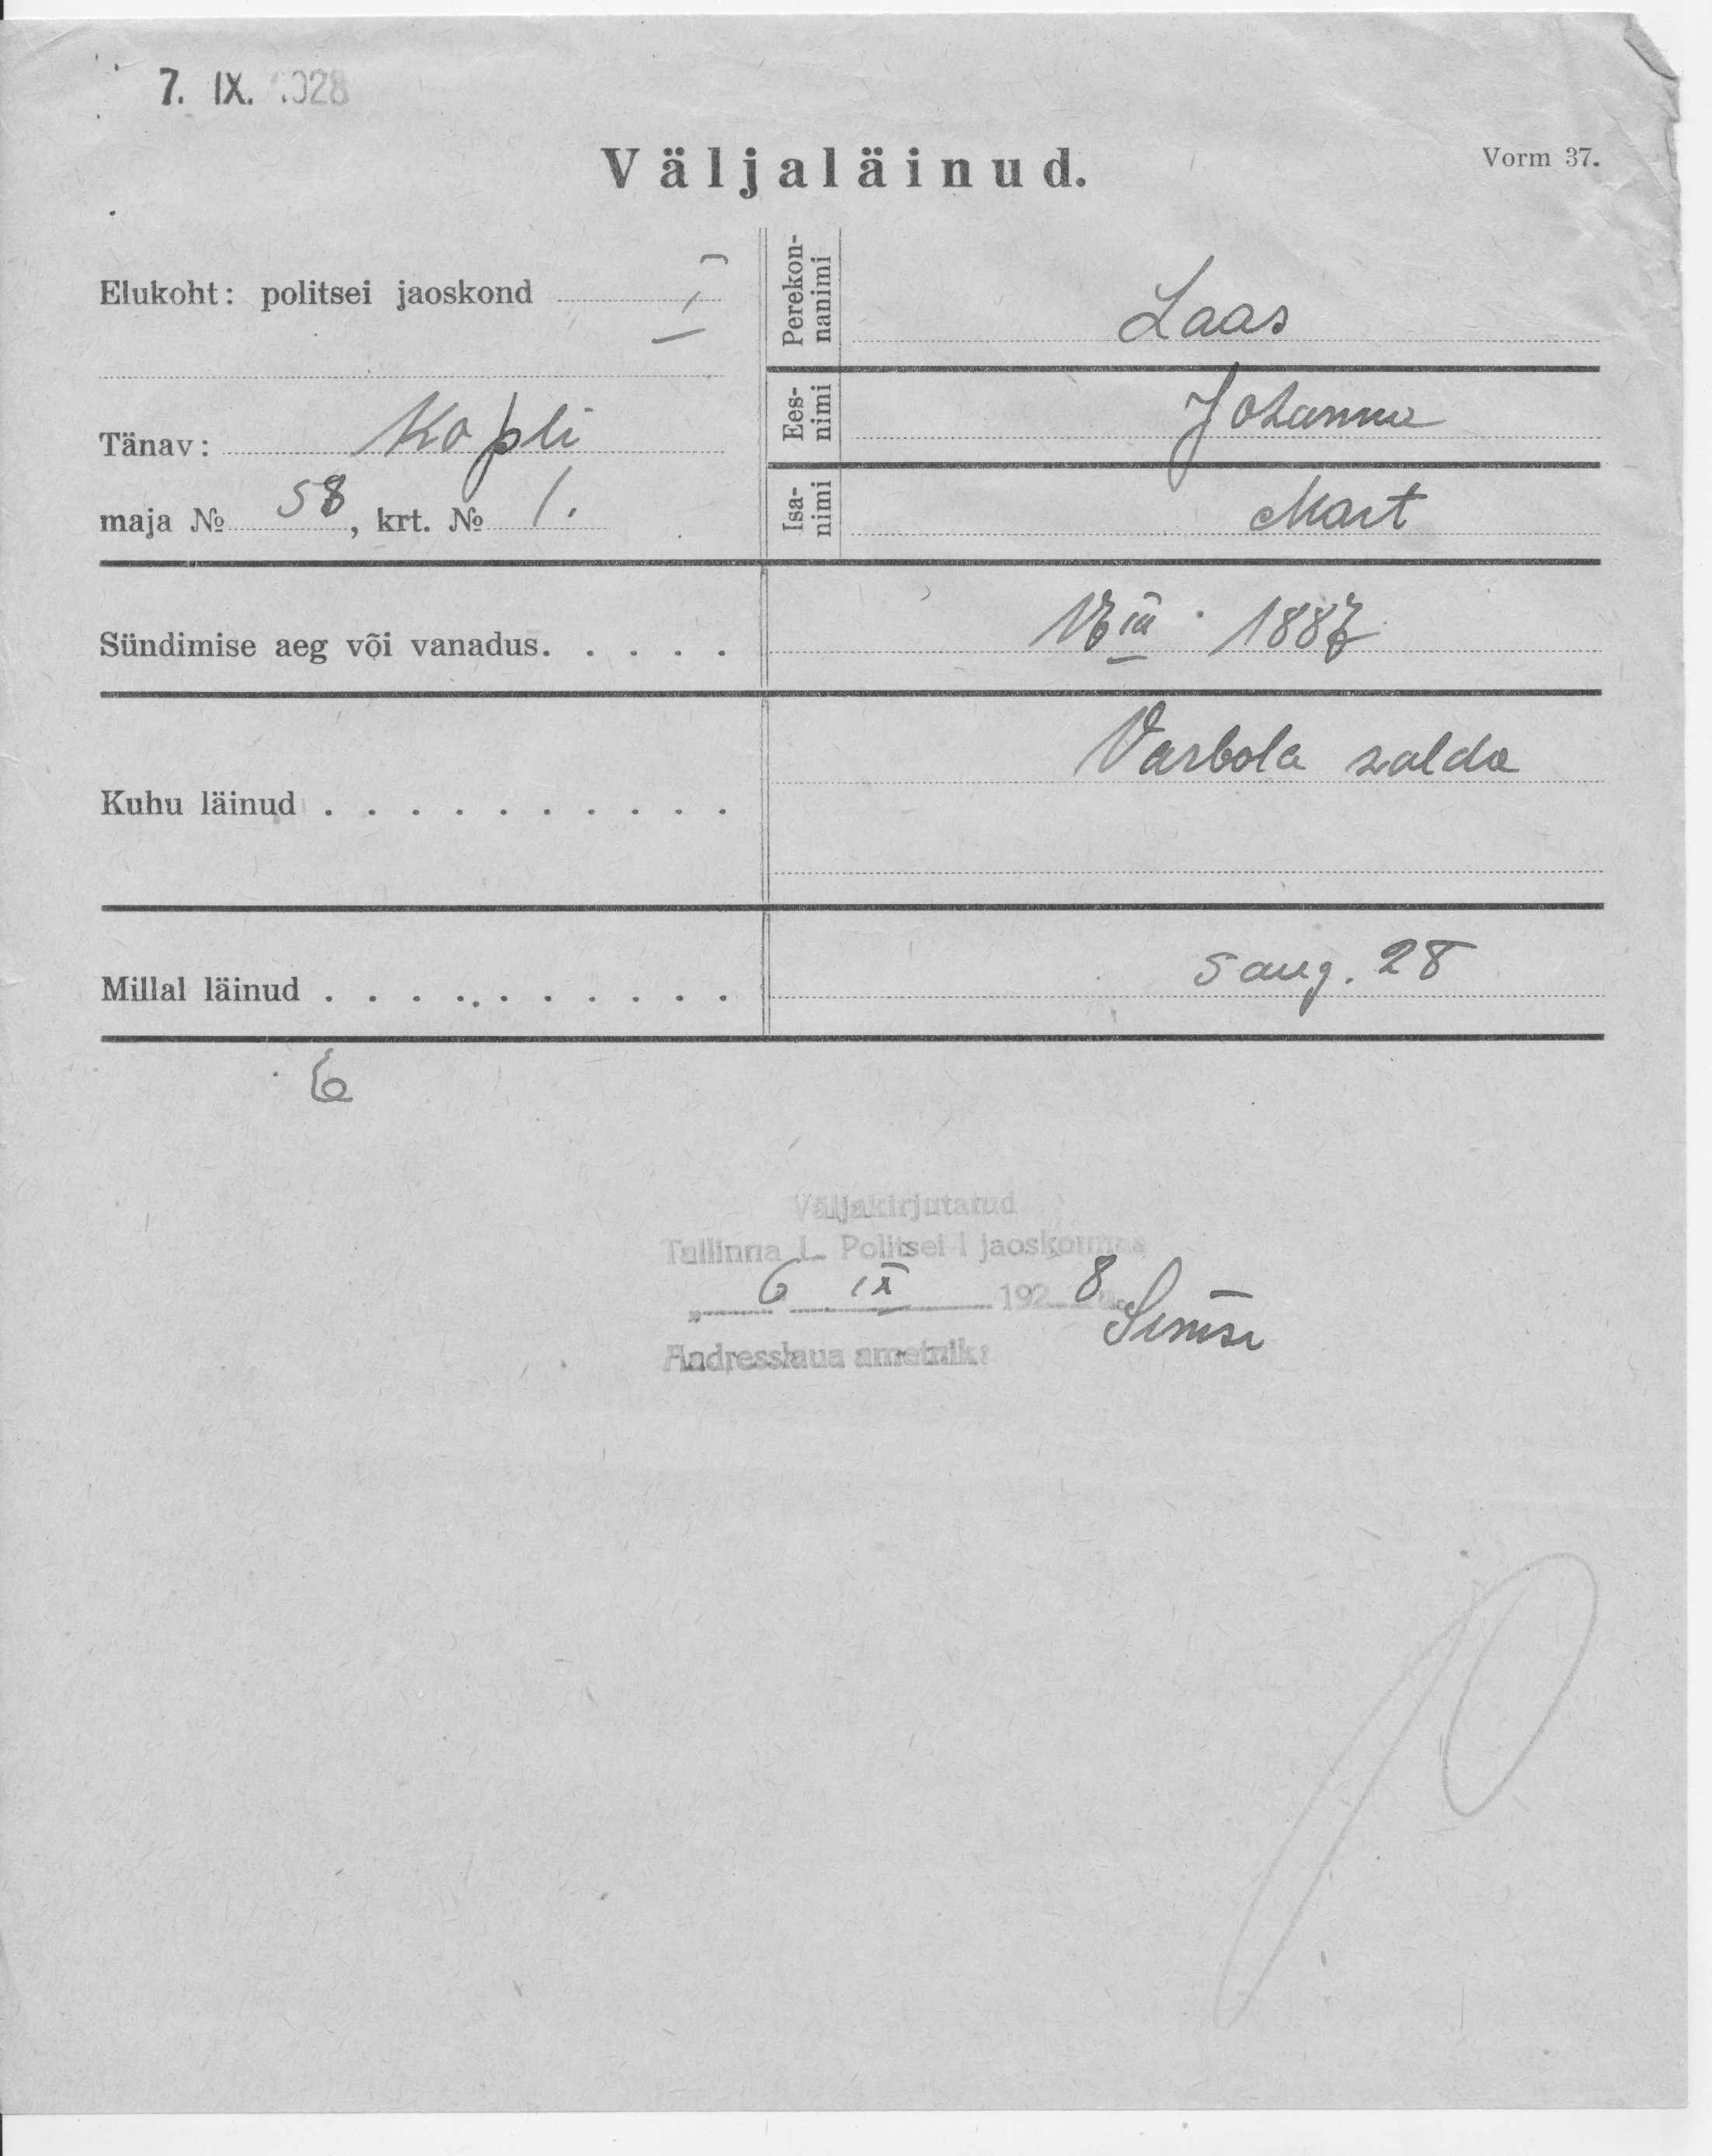 7. IX. 1928
Väljaläinud.
Vorm 37.
Elukoht: politsei jaoskond I
Tänav: Kopli
maja № 58, krt. № 1.
Perekon-
nanimi
Laas
Ees-
nimi
Johanna
Isa-
nimi
Mart
Sündimise aeg või vanadus. . . . . 17 III 1887
Kuhu läinud . . . . . . . . . . . Varbola valda
Millal läinud . . . . . . . . . . . 5 aug. 28
6
Väljakirjutatud
Tallinna L. Politsei I jaoskonnas
„ 6 IX 1928 a.
Aadresslaua ametnik: